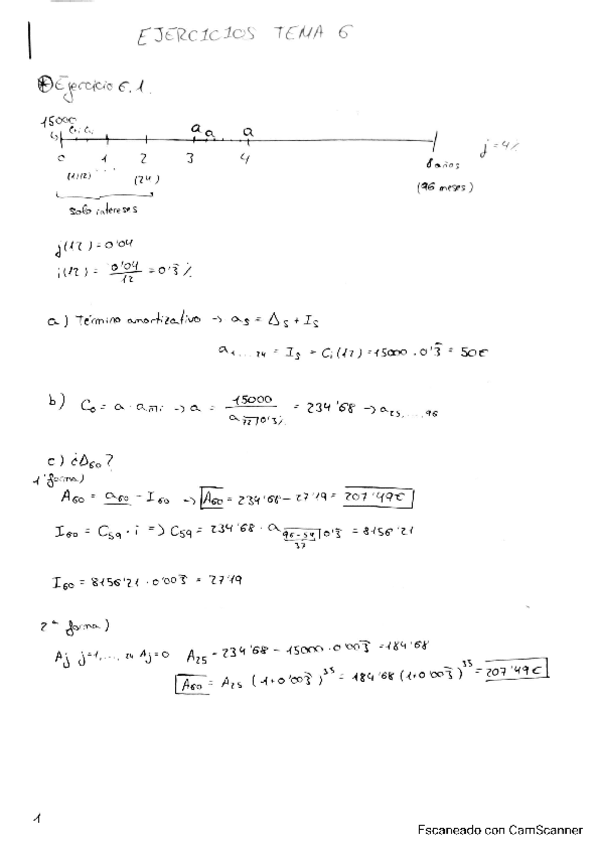 EJERCICIOS TEMA 6
Ejercicio 6.1.
15000
a a a
0 1 2 3 4 8 años j=4%
(1/12) ... (24) (96 meses)
Solo intereses
j(12) = 0'04
i(12) = 0'04/12 = 0'3̄ %
a) Término amortizativo → as = Δs + Is
a1....24 = Is = C i(12) = 15000 · 0'3̄ = 50€
b) C0 = a · a n̅| i → a = 15000 / a 72̅| 0'3% = 234'68 → a25,....,96
c) ¿Δ60?
1ª forma)
A60 = a60 - I60 → A60 = 234'68 - 27'19 = 207'49€
I60 = C59 · i => C59 = 234'68 · a 96-59̅| 0'3̄ = 8156'21
37
I60 = 8156'21 · 0'003̄ = 27'19
2ª forma)
Aj j=1,...,24 Aj=0 A25 = 234'68 - 15000 · 0'003̄ = 184'68
A60 = A25 (1+0'003̄)^35 = 184'68 (1+0'003̄)^35 = 207'49€
1
Escaneado con CamScanner